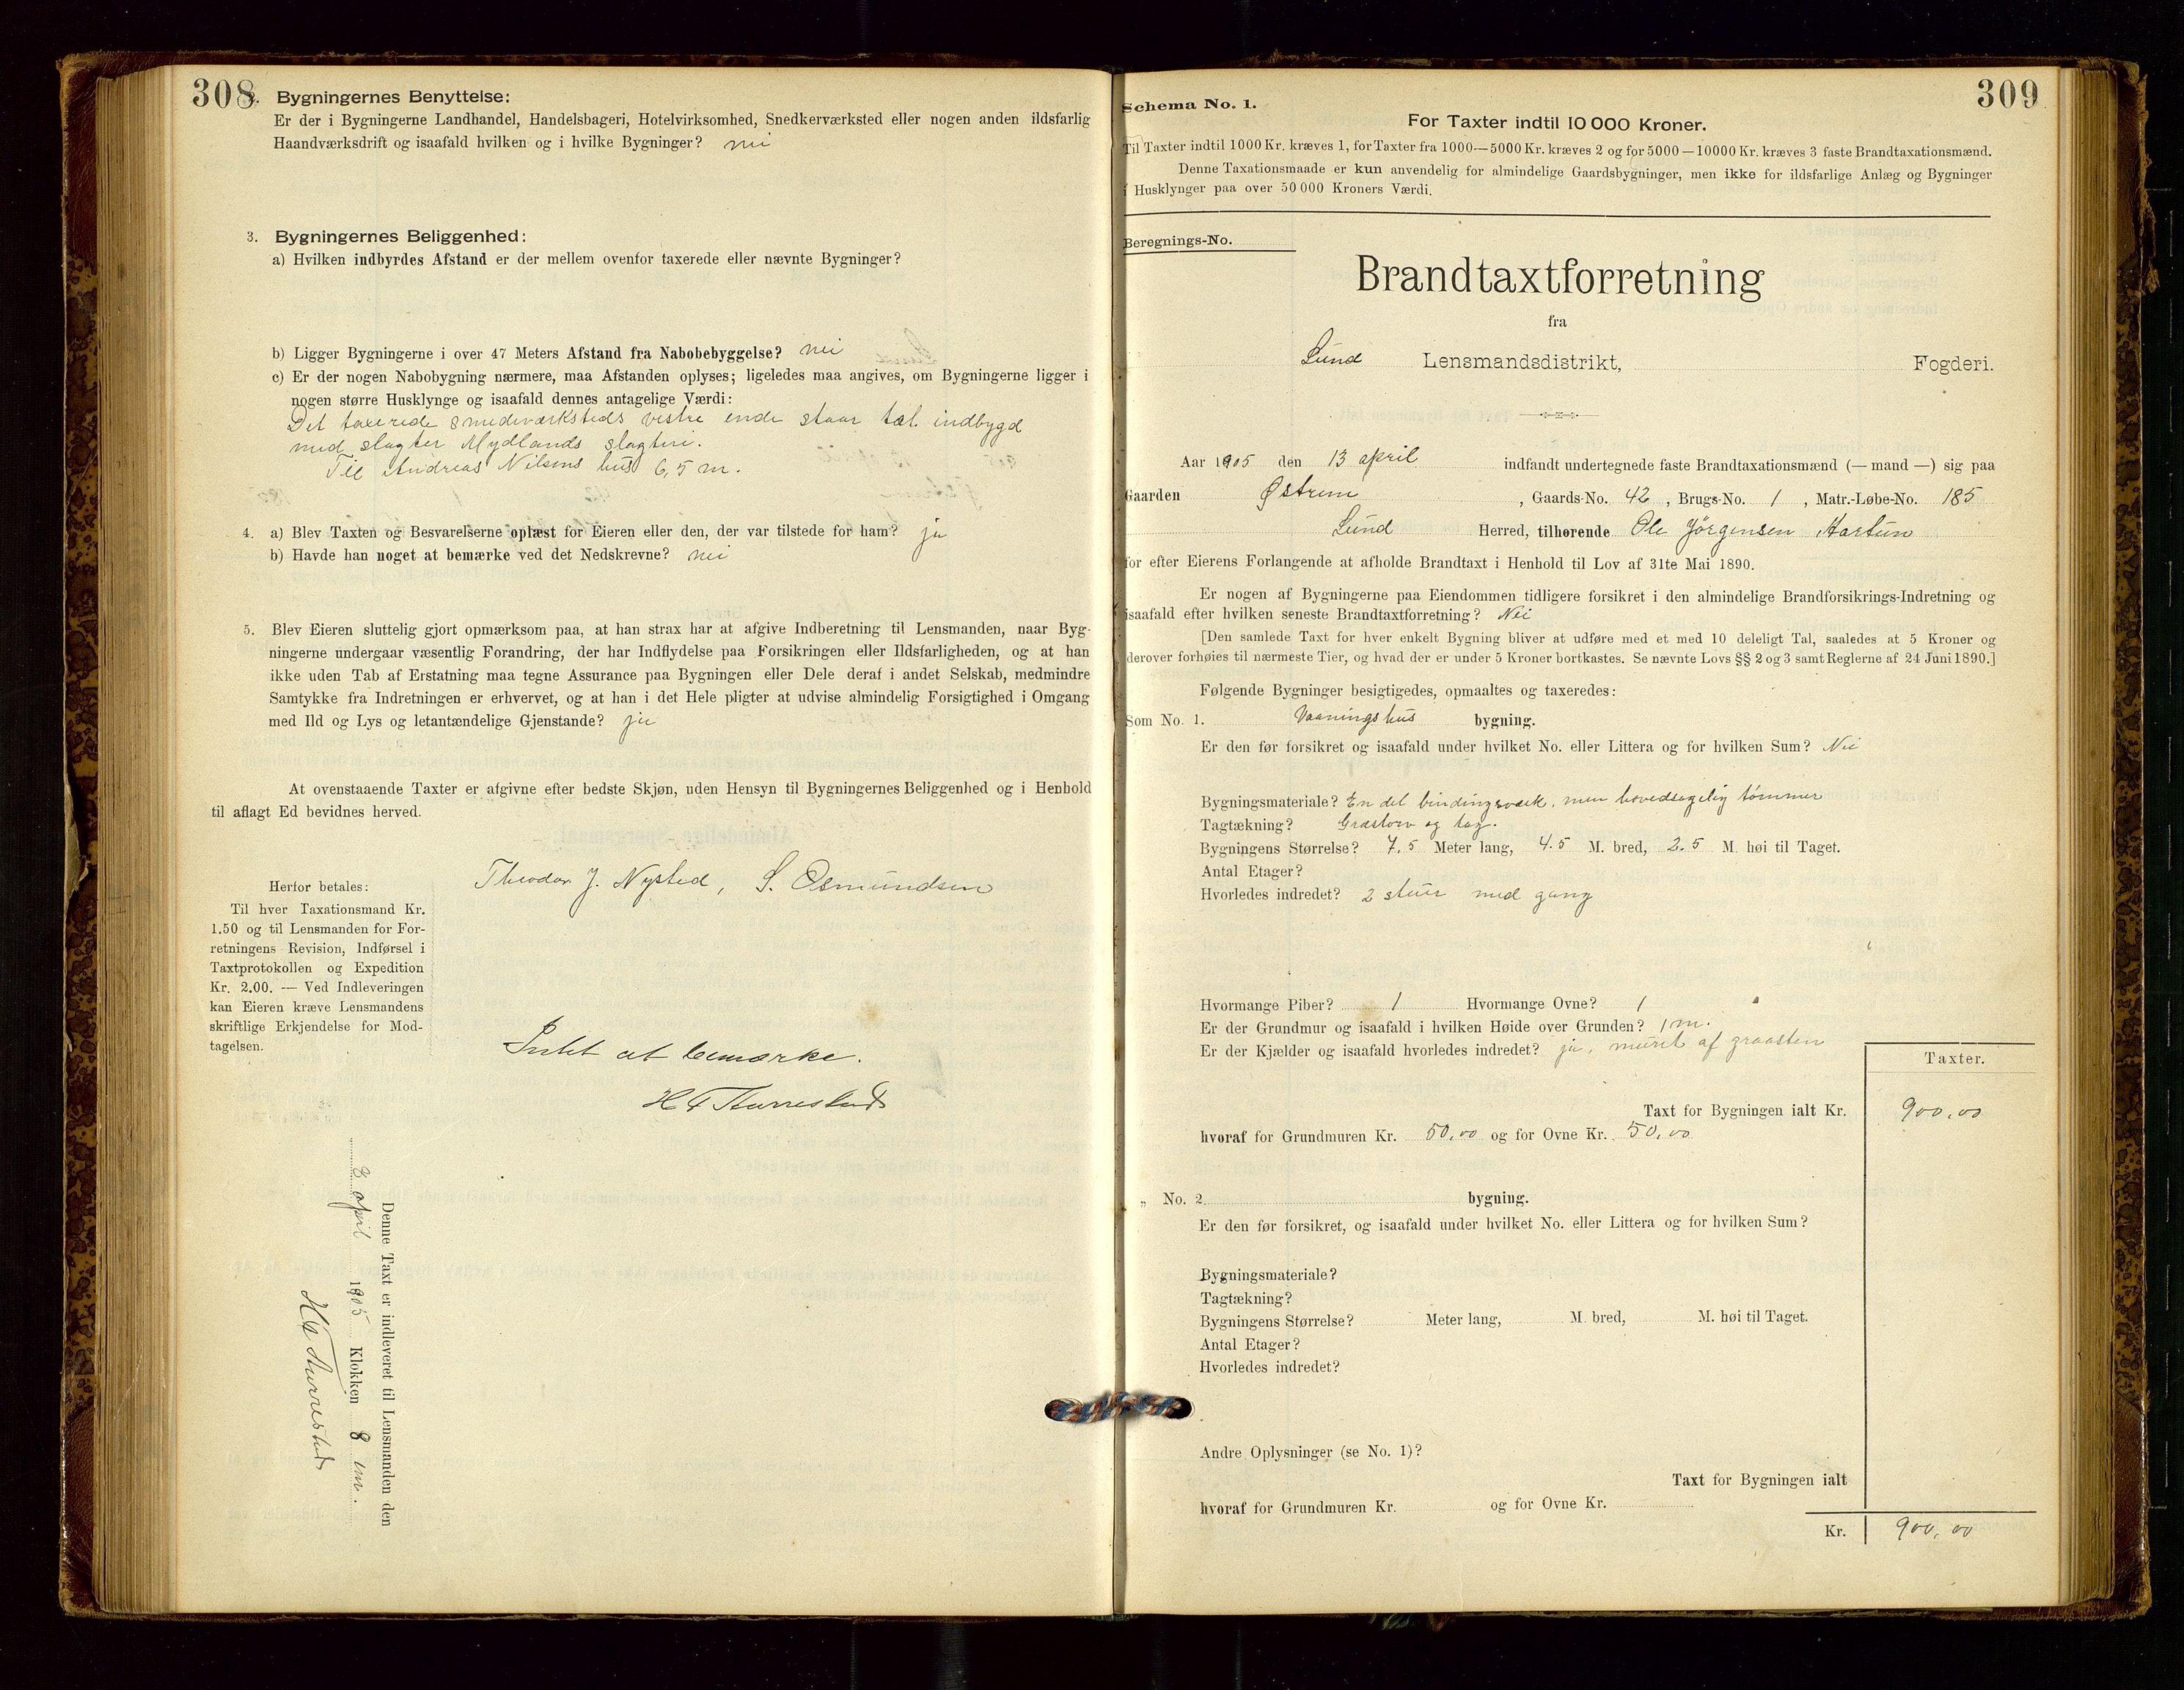 308
2. Bygningernes Benyttelse:
Er der i Bygningerne Landhandel, Handelsbageri, Hotelvirksomhed, Snedkerværksted eller nogen anden ildsfarlig
Haandværksdrift og isaafald hvilken og i hvilke Bygninger? nei
3. Bygningernes Beliggenhed:
a) Hvilken indbyrdes Afstand er der mellem ovenfor taxerede eller nævnte Bygninger?
b) Ligger Bygningerne i over 47 Meters Afstand fra Nabobebyggelse? nei
c) Er der nogen Nabobygning nærmere, maa Afstanden oplyses; ligeledes maa angives, om Bygningerne ligger i
nogen større Husklynge og isaafald dennes antagelige Værdi:
Det taxerede smedeværksteds vestre ende staar tæt indbygd
med slagter Mydlands slagteri.
Til Andreas Nilsens hus 6,5 m.
4. a) Blev Taxten og Besvarelserne oplæst for Eieren eller den, der var tilstede for ham? ja
b) Havde han noget at bemærke ved det Nedskrevne? nei
5. Blev Eieren sluttelig gjort opmærksom paa, at han strax har at afgive Indberetning til Lensmanden, naar Byg-
ningerne undergaar væsentlig Forandring, der har Indflydelse paa Forsikringen eller Ildsfarligheden, og at han
ikke uden Tab af Erstatning maa tegne Assurance paa Bygningen eller Dele deraf i andet Selskab, medmindre
Samtykke fra Indretningen er erhvervet, og at han i det Hele pligter at udvise almindelig Forsigtighed i Omgang
med Ild og Lys og letantændelige Gjenstande? ja
At ovenstaaende Taxter er afgivne efter bedste Skjøn, uden Hensyn til Bygningernes Beliggenhed og i Henhold
til aflagt Ed bevidnes herved.
Theodor J. Nysted, S. Osmundsen
Herfor betales:
Til hver Taxationsmand Kr.
1.50 og til Lensmanden for For-
retningens Revision, Indførsel i
Taxtprotokollen og Expedition
Kr. 2.00. — Ved Indleveringen
kan Eieren kræve Lensmandens
skriftlige Erkjendelse for Mod-
tagelsen.
Intet at bemærke.
Denne Taxt er indleveret til Lensmanden den
8 april 1905 Klokken 8 em.
309
Schema No. 1.
For Taxter indtil 10 000 Kroner.
Til Taxter indtil 1000 Kr. kræves 1, for Taxter fra 1000—5000 Kr. kræves 2 og for 5000—10000 Kr. kræves 3 faste Brandtaxationsmænd.
Denne Taxationsmaade er kun anvendelig for almindelige Gaardsbygninger, men ikke for ildsfarlige Anlæg og Bygninger
i Husklynger paa over 50 000 Kroners Værdi.
Beregnings-No.
Brandtaxtforretning
fra
Lund Lensmandsdistrikt, Fogderi.
Aar 1905 den 13 april indfandt undertegnede faste Brandtaxationsmænd (— mand —) sig paa
Gaarden Østrem, Gaards-No. 42, Brugs-No. 1, Matr.-Løbe-No. 185
Lund Herred, tilhørende Ole Jörgensen Aartun
for efter Eierens Forlangende at afholde Brandtaxt i Henhold til Lov af 31te Mai 1890.
Er nogen af Bygningerne paa Eiendommen tidligere forsikret i den almindelige Brandforsikrings-Indretning og
isaafald efter hvilken seneste Brandtaxtforretning? Nei
[Den samlede Taxt for hver enkelt Bygning bliver at udføre med et med 10 deleligt Tal, saaledes at 5 Kroner og
derover forhøies til nærmeste Tier, og hvad der er under 5 Kroner bortkastes. Se nævnte Lovs §§ 2 og 3 samt Reglerne af 24 Juni 1890.]
Følgende Bygninger besigtigedes, opmaaltes og taxeredes:
Som No. 1. Vaaningshus bygning.
Er den før forsikret og isaafald under hvilket No. eller Littera og for hvilken Sum? Nei
Bygningsmateriale? En del bindingsværk, men hovedsagelig tömmer
Tagtækning? Græstorv og tag.
Bygningens Størrelse? 7.5 Meter lang, 4.5 M. bred, 2.5 M. høi til Taget.
Antal Etager?
Hvorledes indredet? 2 stuer med gang
Hvormange Piber? 1 Hvormange Ovne? 1
Er der Grundmur og isaafald i hvilken Høide over Grunden? 1 m.
Er der Kjælder og isaafald hvorledes indredet? ja, muret af graasten
Taxter.
Taxt for Bygningen ialt Kr. 900,00
hvoraf for Grundmuren Kr. 50,00 og for Ovne Kr. 50,00
„ No. 2. bygning.
Er den før forsikret, og isaafald under hvilket No. eller Littera og for hvilken Sum?
Bygningsmateriale?
Tagtækning?
Bygningens Størrelse? Meter lang, M. bred, M. høi til Taget.
Antal Etager?
Hvorledes indredet?
Andre Oplysninger (se No. 1)?
Taxt for Bygningen ialt
hvoraf for Grundmuren Kr. og for Ovne Kr.
Kr. 900,00